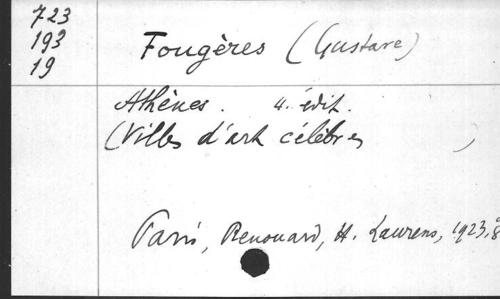 723
193
19
Fougères (Gustave)
Athènes. 4. édit.
(Villes d'art célèbres )
Paris, Renouard, H. Laurens, 1923, 8